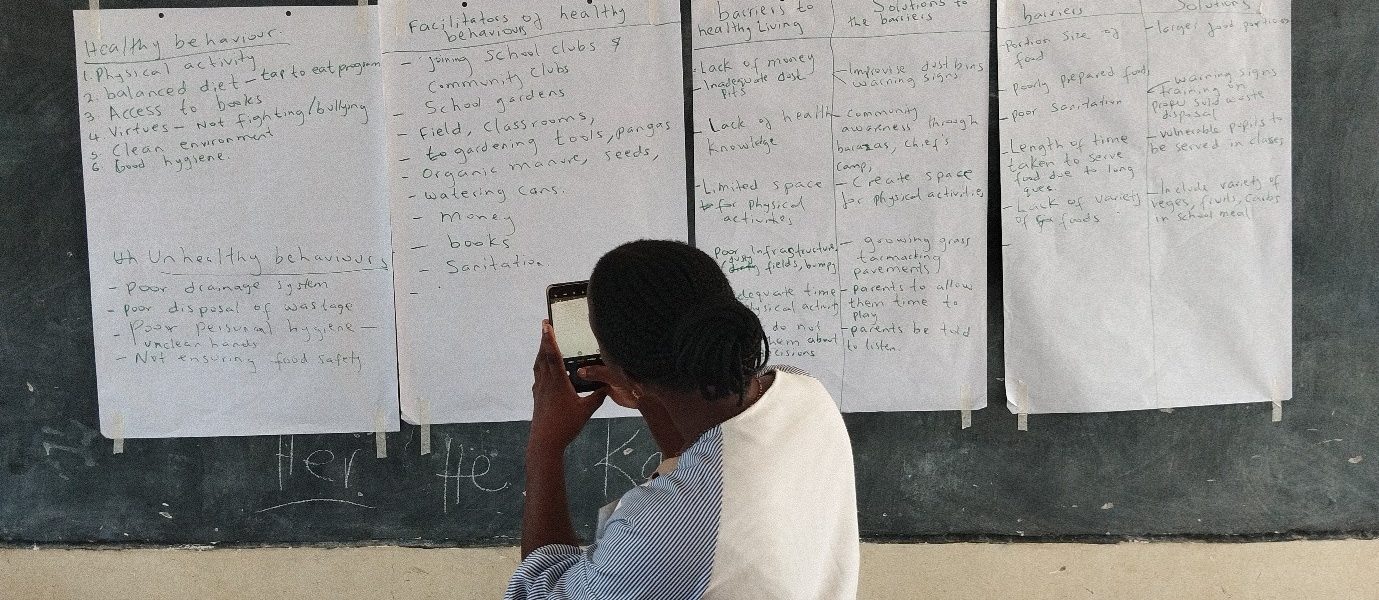 Healthy behaviour.
1. Physical activity
2. balanced diet - tap to eat program
3. Access to books
4. Virtues - Not fighting/bullying
5. Clean environment
6. Good hygiene.
Unhealthy behaviours
- Poor drainage system
- Poor disposal of wastage
- Poor personal hygiene -
unclean hands
- Not ensuring food safety
Facilitators of healthy
behaviours
- joining School clubs &
Community clubs
- School gardens
- Field, classrooms,
- gardening tools, pangas
- Organic manure, seeds,
- watering cans.
- money
- books
- Sanitation.
-
barriers to
healthy Living
- Lack of money
- Inadequate dust
pits
- Lack of health
Knowledge
- Limited space
for physical
activities
Poor Infrastructure
fields, bumpy
time
activity
do not
them about
Solutions to
the barriers
- Improvise dust bins
warning signs
- Community
awareness through
barazas, chief's
camp,
- Create space
for physical activities
- growing grass
tarmacking
pavements
- parents to allow
them time to
play
- parents be told
to listen.
barriers
- Portion size of
food
- poorly prepared food
- poor sanitation
- Length of time
taken to serve
food due to long
ques
- Lack of variety
of foods
-
Solutions
- larger food portions
- warning signs
- training on
proper solid waste
disposal
- vulnerable pupils to
be served in classes
- Include variety of
veges, fruits, carbs
in school meal
Her He Ka